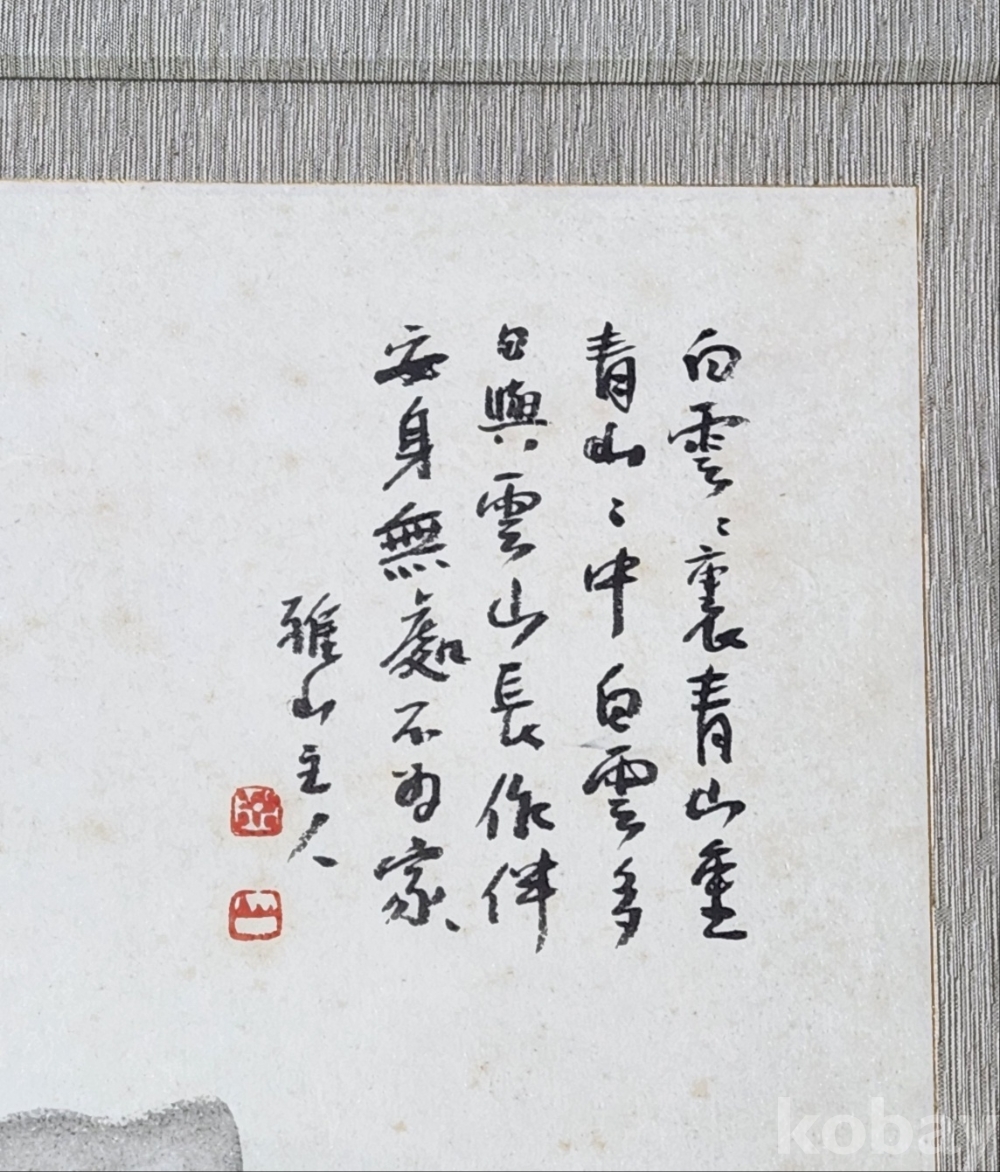 白雲〻裏青山重
青山〻中白雲多
日與雲山長作伴
安身無處不為家
雅山主人
山
kobay